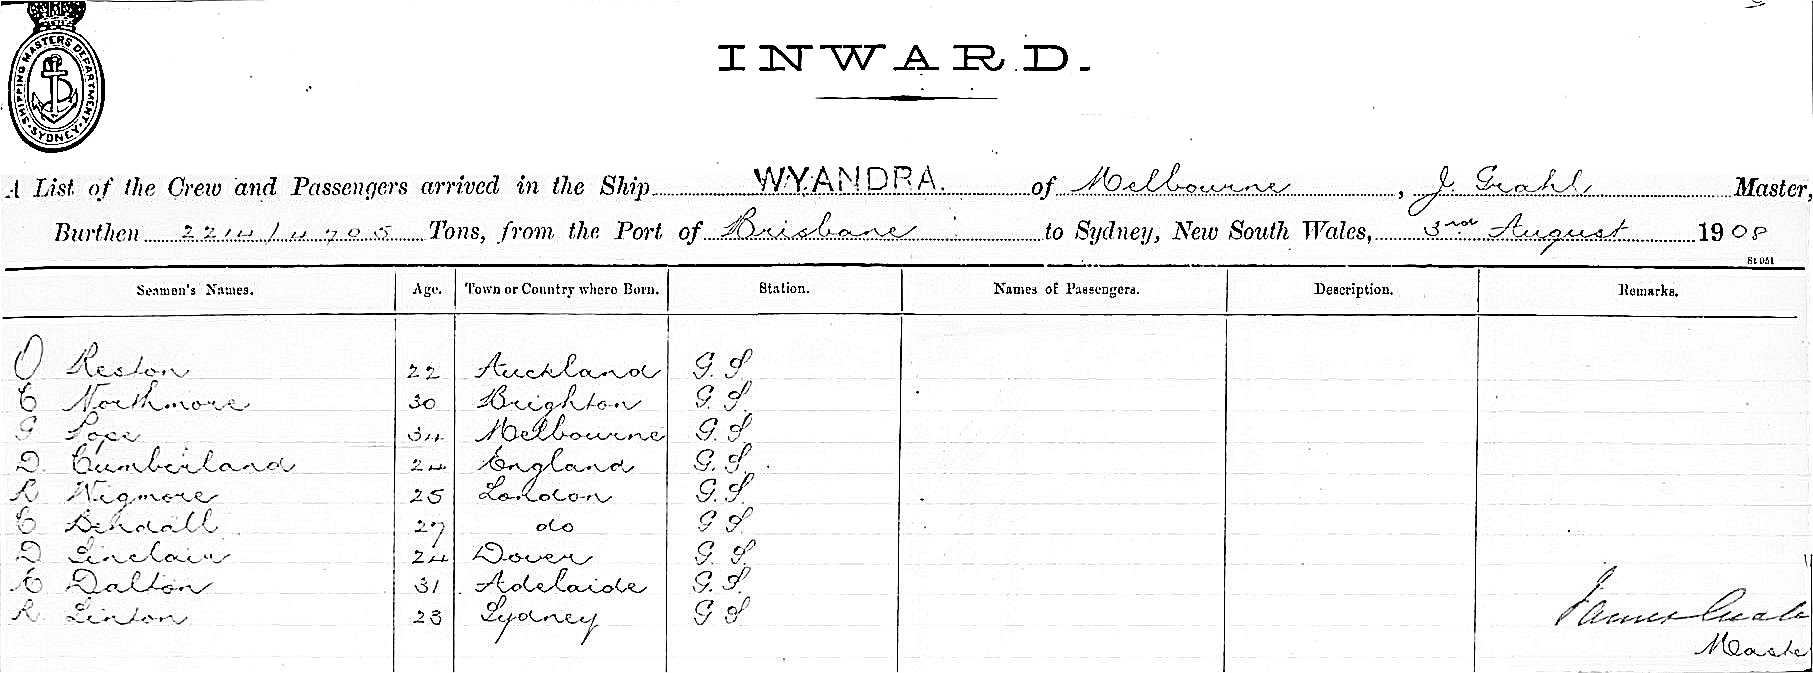 SHIPPING MASTERS DEPARTMENT. SYDNEY
INWARD.
A List of the Crew and Passengers arrived in the Ship WYANDRA. of Melbourne, J. Grahl Master,
Burthen 2214/4705 Tons, from the Port of Brisbane to Sydney, New South Wales, 3rd August 1908
St 051
Seamen's Names. Age. Town or Country where Born. Station. Names of Passengers. Description. Remarks.
O Reston 22 Auckland G. S.
E Northmore 30 Brighton G. S.
G Pope 34 Melbourne G. S.
D. Cumberland 24 England G. S.
R Wigmore 25 London G. S.
E Bendall 27 do G S
D Sinclair 24 Dover G. S.
E Dalton 31 Adelaide G. S.
R. Linton 23 Sydney G S
James
Maste